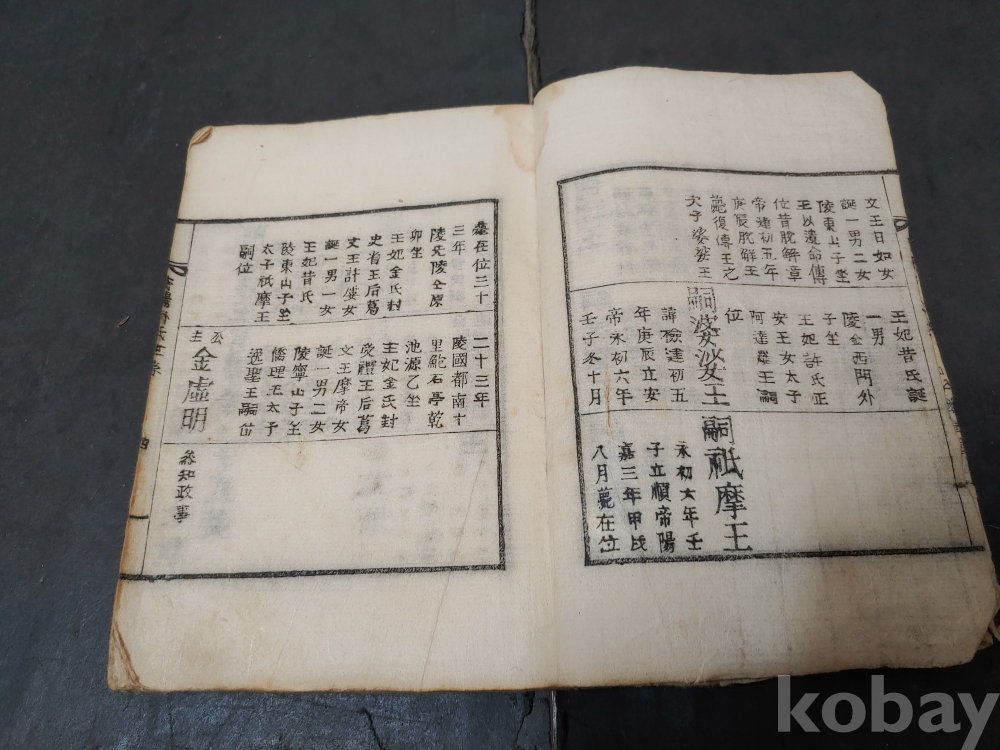 文王日如女
誕一男二女
陵東山子坐
王以遺命傳
位昔脫解章
帝建初五年
脫解王
薨復傳王之
次子婆娑王
王妃昔氏誕
一男
陵金西門外
子坐
王妃許氏正
安王女太子
阿達羅王嗣
位
嗣婆娑王
諱檢建初五
年庚辰立安
帝永初六年
壬子冬十月
嗣祇摩王
永初六年壬
子立順帝陽
嘉三年甲戌
八月薨在位
薨在位三十
三年
陵先陵仝原
卯坐
王妃金氏封
史省王后葛
文王許婁女
誕一男一女
王妃昔氏
陵東山子坐
太子祇摩王
嗣位
二十三年
陵國都南十
里鮀石亭乾
池源乙坐
王妃金氏封
愛禮王后葛
文王摩帝女
誕一男二女
陵寧山子坐
儒理王太子
逸聖王嗣位
公主
金虛明
叅知政事
四
kobay